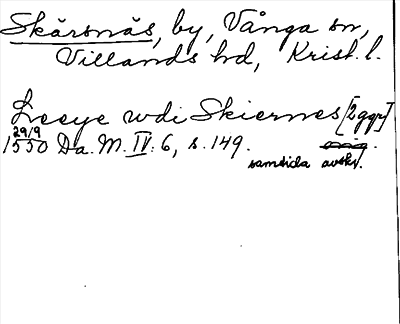 Skärsnäs, by, Vånga sn,
Villands hd, Krist. l.
Leeye wdi Skiernes [2 ggr]
29/9
1550 Da. M. IV: 6, s. 149. orig.
samtida avskr.